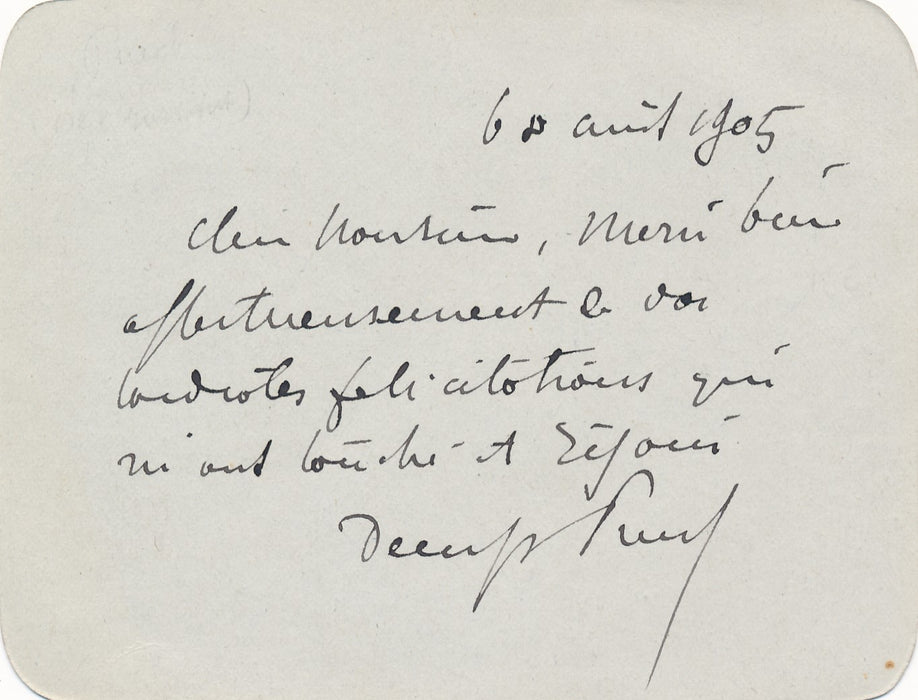 6 août 1905
Cher Monsieur, Merci bien
affectueusement de vos
cordiales felicitations qui
m'ont touché et réjoui